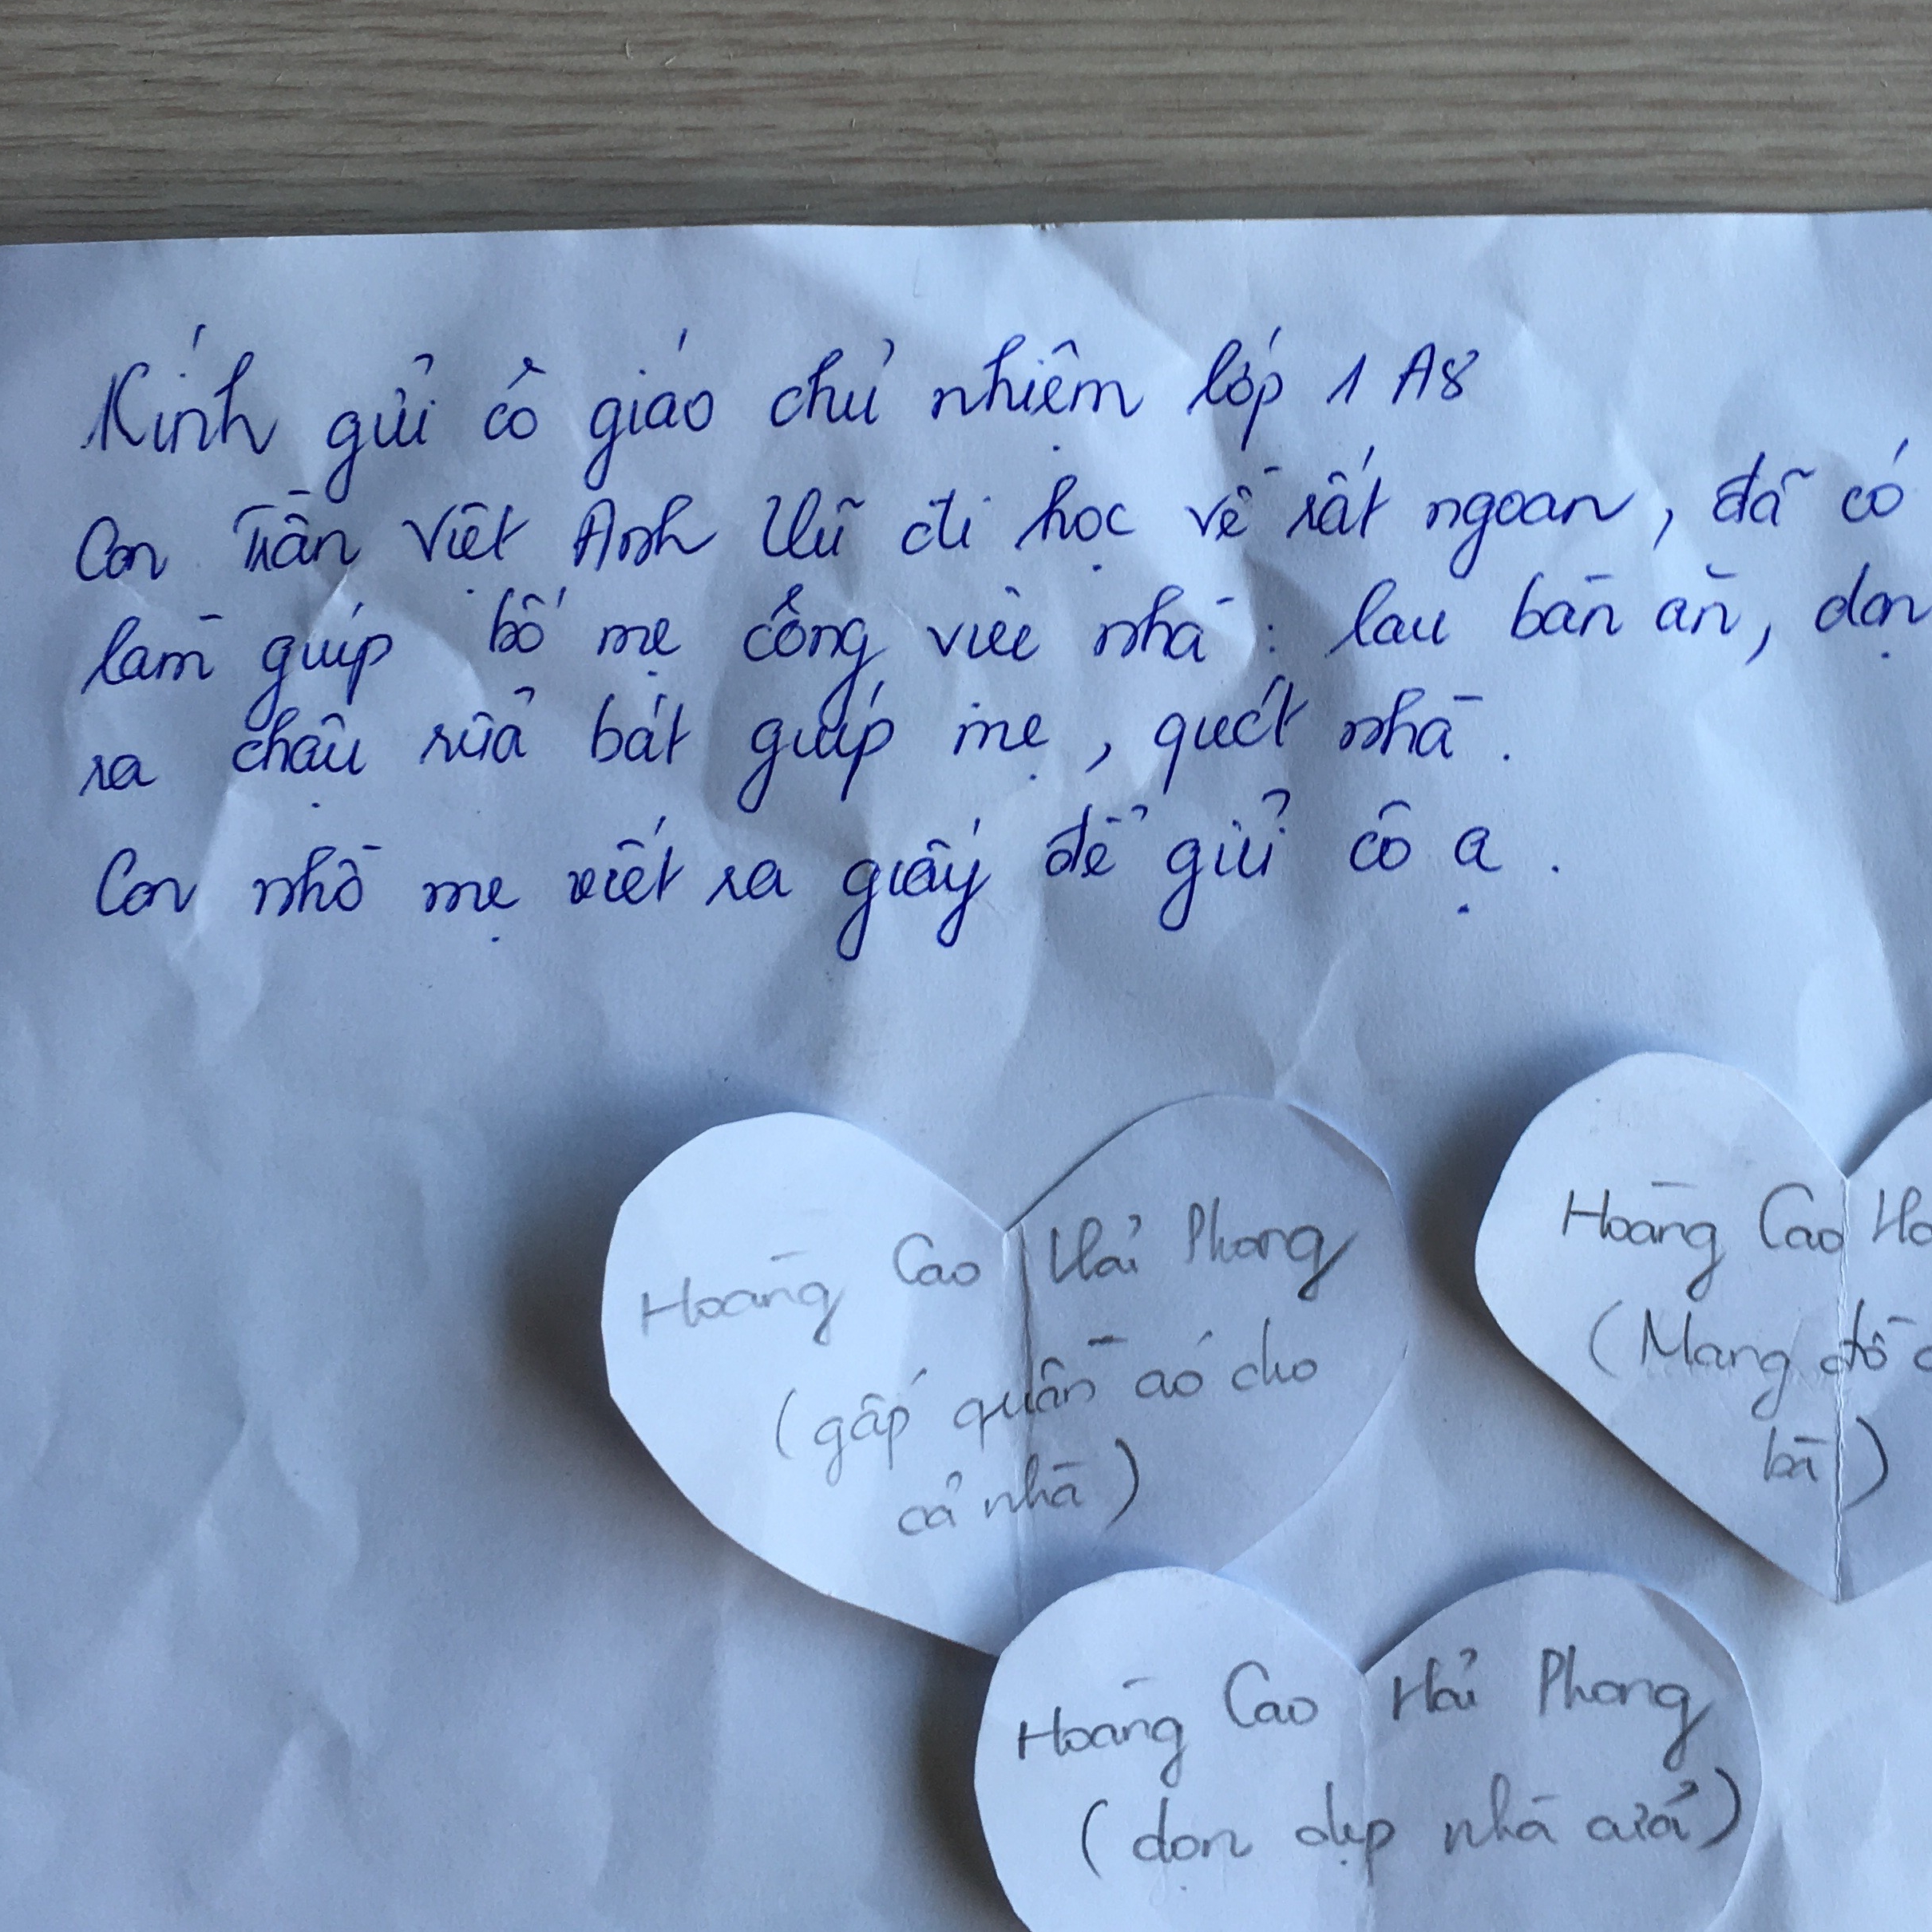 Kính gửi cô giáo chủ nhiệm lớp 1A8
Con Trần Việt Anh Vũ đi học về rất ngoan, đã có
làm giúp bố mẹ công việc nhà: lau bàn ăn, dọn
ra chậu rửa bát giúp mẹ, quét nhà.
Con nhờ mẹ viết ra giấy để gửi cô ạ.
Hoàng Cao Hải Phong
(gấp quần áo cho
cả nhà)
Hoàng Cao
(Mang đồ
bà)
Hoàng Cao Hải Phong
(dọn dẹp nhà cửa)